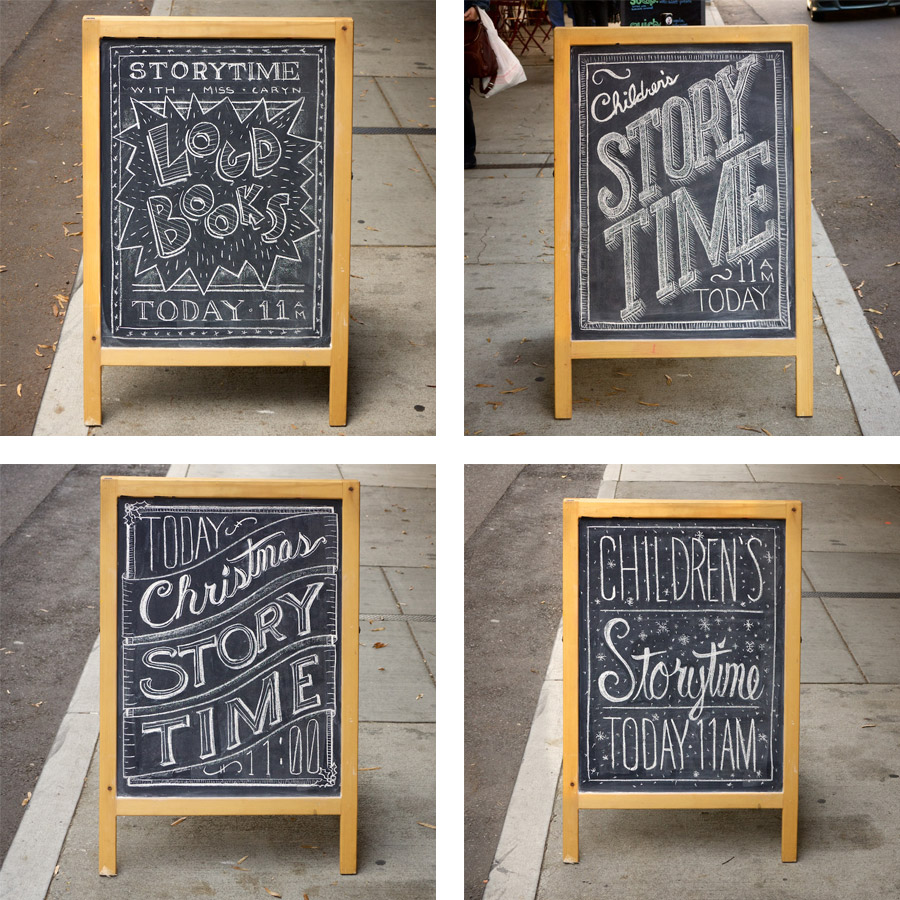 STORYTIME
WITH • MISS • CARYN
LOUD
BOOKS
TODAY • 11 AM
Children's
STORY
TIME
~11 AM
TODAY
TODAY
Christmas
STORY
TIME
11:00
CHILDREN'S
Storytime
TODAY 11AM